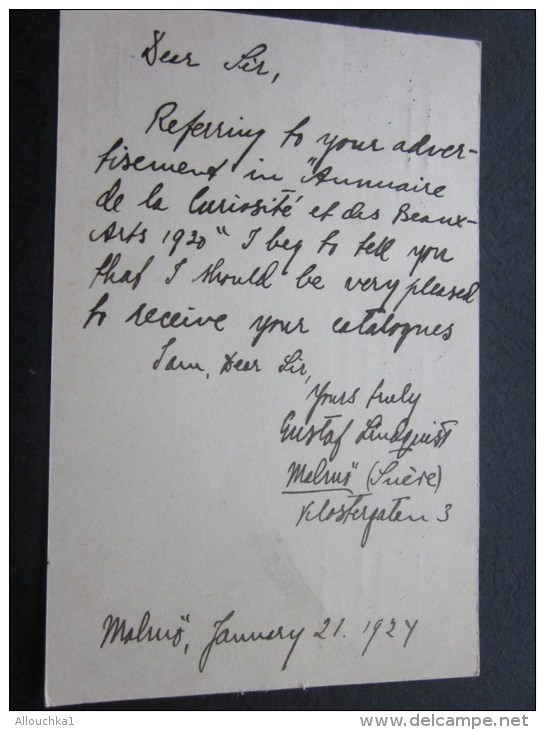 Dear Sir,
Referring to your adver-
tisement in "Annuaire
de la Curiosité et des Beaux-
Arts 1920" I beg to tell you
that I should be very pleased
to receive your catalogues
I am, Dear Sir,
Yours truly
Gustaf Lindquist
Malmö (Suède)
Klostergatan 3
Malmö, January 21. 1924
Allouchka1
http://www.delcampe.net